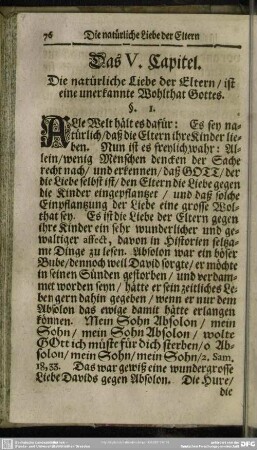 76 Die natürliche Liebe der Eltern
Das V. Capitel.
Die natürliche Liebe der Eltern / ist
eine unerkannte Wohlthat Gottes.
§. 1.
ALle Welt hält es dafür: Es sey na-
türlich / daß die Eltern ihre Kinder lie-
ben. Nun ist es freylich wahr: Al-
lein / wenig Menschen dencken der Sache
recht nach / und erkennen / daß GOTT / der
die Liebe selbst ist / den Eltern die Liebe gegen
die Kinder eingepflantzet / und daß solche
Einpflantzung der Liebe eine grosse Wol-
that sey. Es ist die Liebe der Eltern gegen
ihre Kinder ein sehr wunderlicher und ge-
waltiger affect, davon in Historien seltza-
me Dinge zu lesen. Absolon war ein böser
Bube / dennoch weil David sorgte / er möchte
in seinen Sünden gestorben / und verdam-
met worden seyn / hätte er sein zeitliches Le-
ben gern dahin gegeben / wenn er nur dem
Absolon das ewige damit hätte erlangen
können. Mein Sohn Absolon / mein
Sohn / mein Sohn Absolon / wolte
GOtt ich müste für dich sterben / o Ab-
solon / mein Sohn / mein Sohn / 2. Sam.
18, 33. Das war gewiß eine wundergrosse
Liebe Davids gegen Absolon. Die Hure /
die